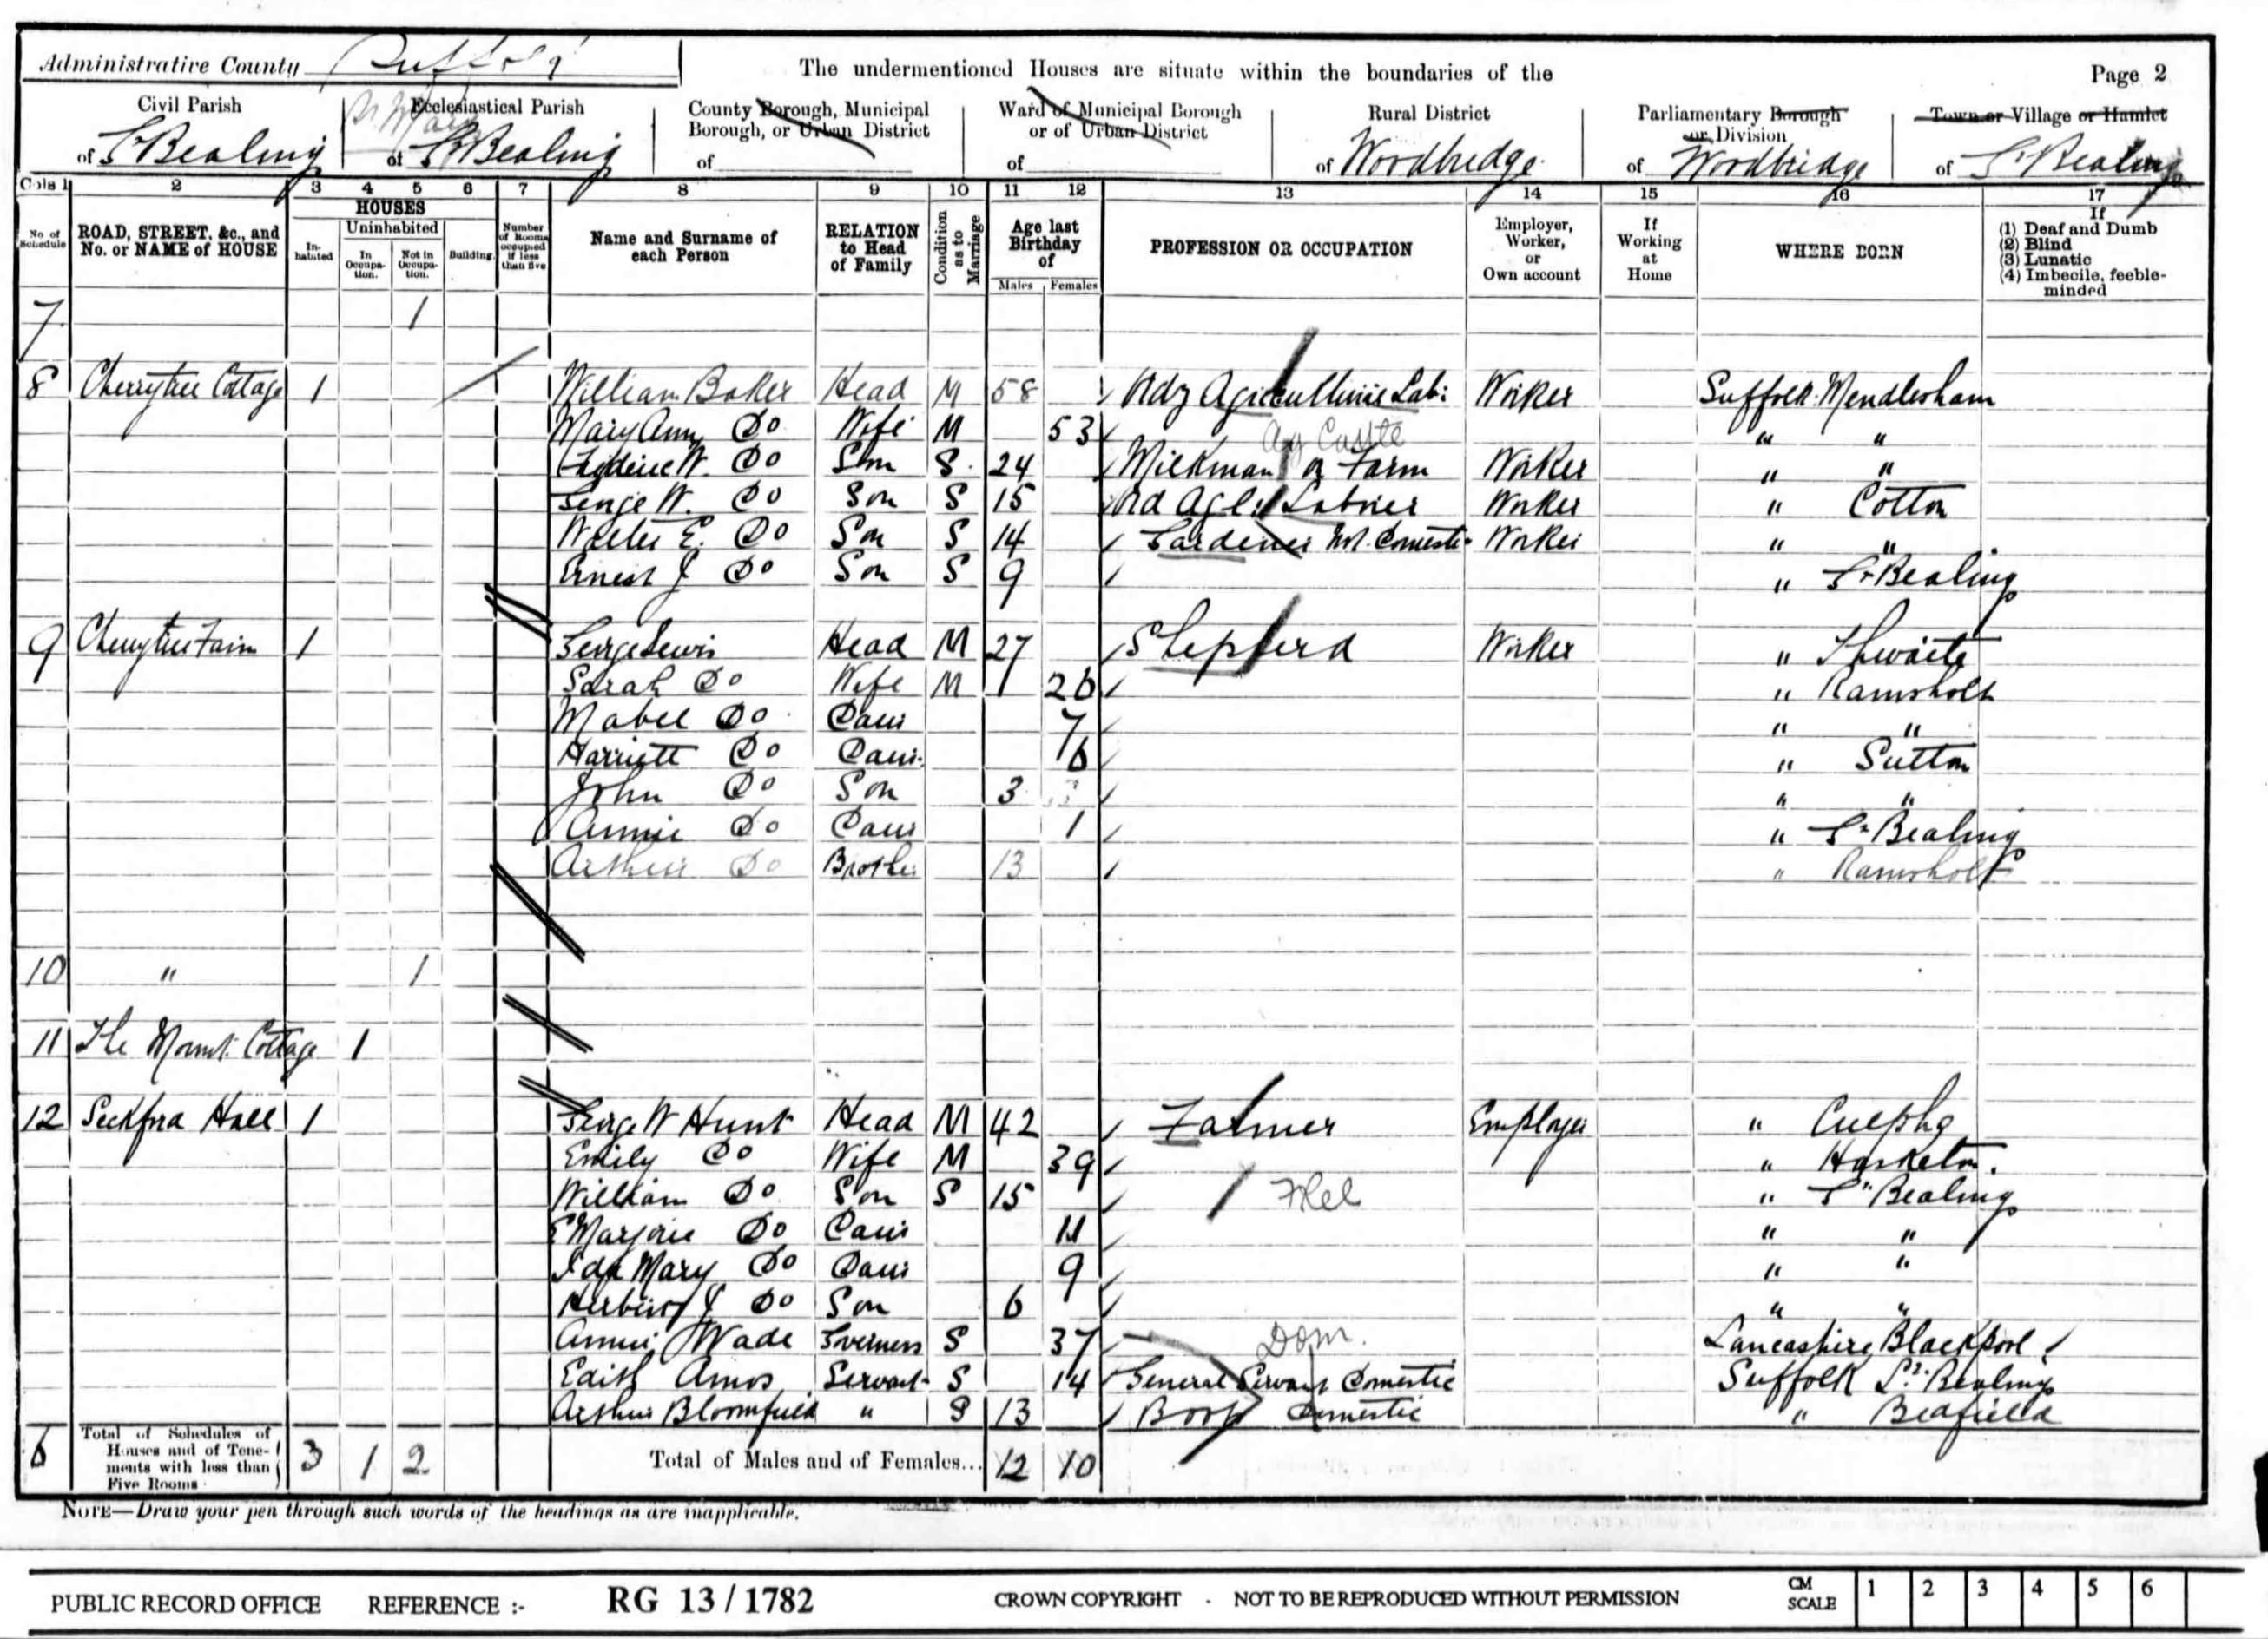 Administrative County Suffolk
The undermentioned Houses are situate within the boundaries of the
Page 2
Civil Parish of Gt Bealing
Ecclesiastical Parish of St Mary Gt Bealing
County Borough, Municipal Borough, or Urban District of
Ward of Municipal Borough or of Urban District of
Rural District of Woodbridge
Parliamentary Borough or Division of Woodbridge
Town or Village or Hamlet of Gt Bealing
Cols 1 2 3 4 5 6 7 8 9 10 11 12 13 14 15 16 17
No of Schedule
ROAD, STREET, &c., and No. or NAME of HOUSE
HOUSES
Inhabited
Uninhabited
In Occupation.
Not in Occupation.
Building.
Number of Rooms occupied if less than five
Name and Surname of each Person
RELATION to Head of Family
Condition as to Marriage
Age last Birthday of
Males Females
PROFESSION OR OCCUPATION
Employer, Worker, or Own account
If Working at Home
WHERE BORN
If
(1) Deaf and Dumb
(2) Blind
(3) Lunatic
(4) Imbecile, feeble-minded
7 1
8 Cherrytree Cottage 1 William Baker Head M 58 Agricultural Lab: Worker Suffolk Mendlesham
Mary Ann Do Wife M 53 " "
Ag Cattle
W. Do Son S 24 Milkman on Farm Worker " "
George W. Do Son S 15 Od Agl: Labrer Worker " Cotton
Walter E. Do Son S 14 Gardener Not Domestic Worker " "
Ernest J Do Son S 9 " Gt Bealing
9 Cherrytree Farm 1 George Lewis Head M 27 Shepherd Worker " Thwaite
Sarah Do Wife M 26 " Ramsholt
Mabel Do Daur 7 " "
Harriett Do Daur. 6 " Sutton
John Do Son 3 " "
Annie Do Daur 1 " Gt Bealing
Arthur Do Brother 13 " Ramsholt
10 " 1
11 The Mount Cottage 1
12 Seckford Hall 1 George W Hunt Head M 42 Farmer Employer " Culpho
Emily Do Wife M 39 " Hasketon.
William Do Son S 15 " Gt Bealing
E Marjorie Do Daur 11 " "
Ida Mary Do Daur 9 " "
Herbert J Do Son 6 " "
Annie Wade Governess S 37 Dom. Lancashire Blackpool
Edith Amos Servant S 14 General Servant Domestic Suffolk Gt Bealings
Arthur Bloomfield " S 13 Domestic "
6 Total of Schedules of Houses and of Tenements with less than Five Rooms 3 1 2 Total of Males and of Females... 12 10
NOTE—Draw your pen through such words of the headings as are inapplicable.
PUBLIC RECORD OFFICE REFERENCE :- RG 13 / 1782 CROWN COPYRIGHT - NOT TO BE REPRODUCED WITHOUT PERMISSION CM SCALE 1 2 3 4 5 6